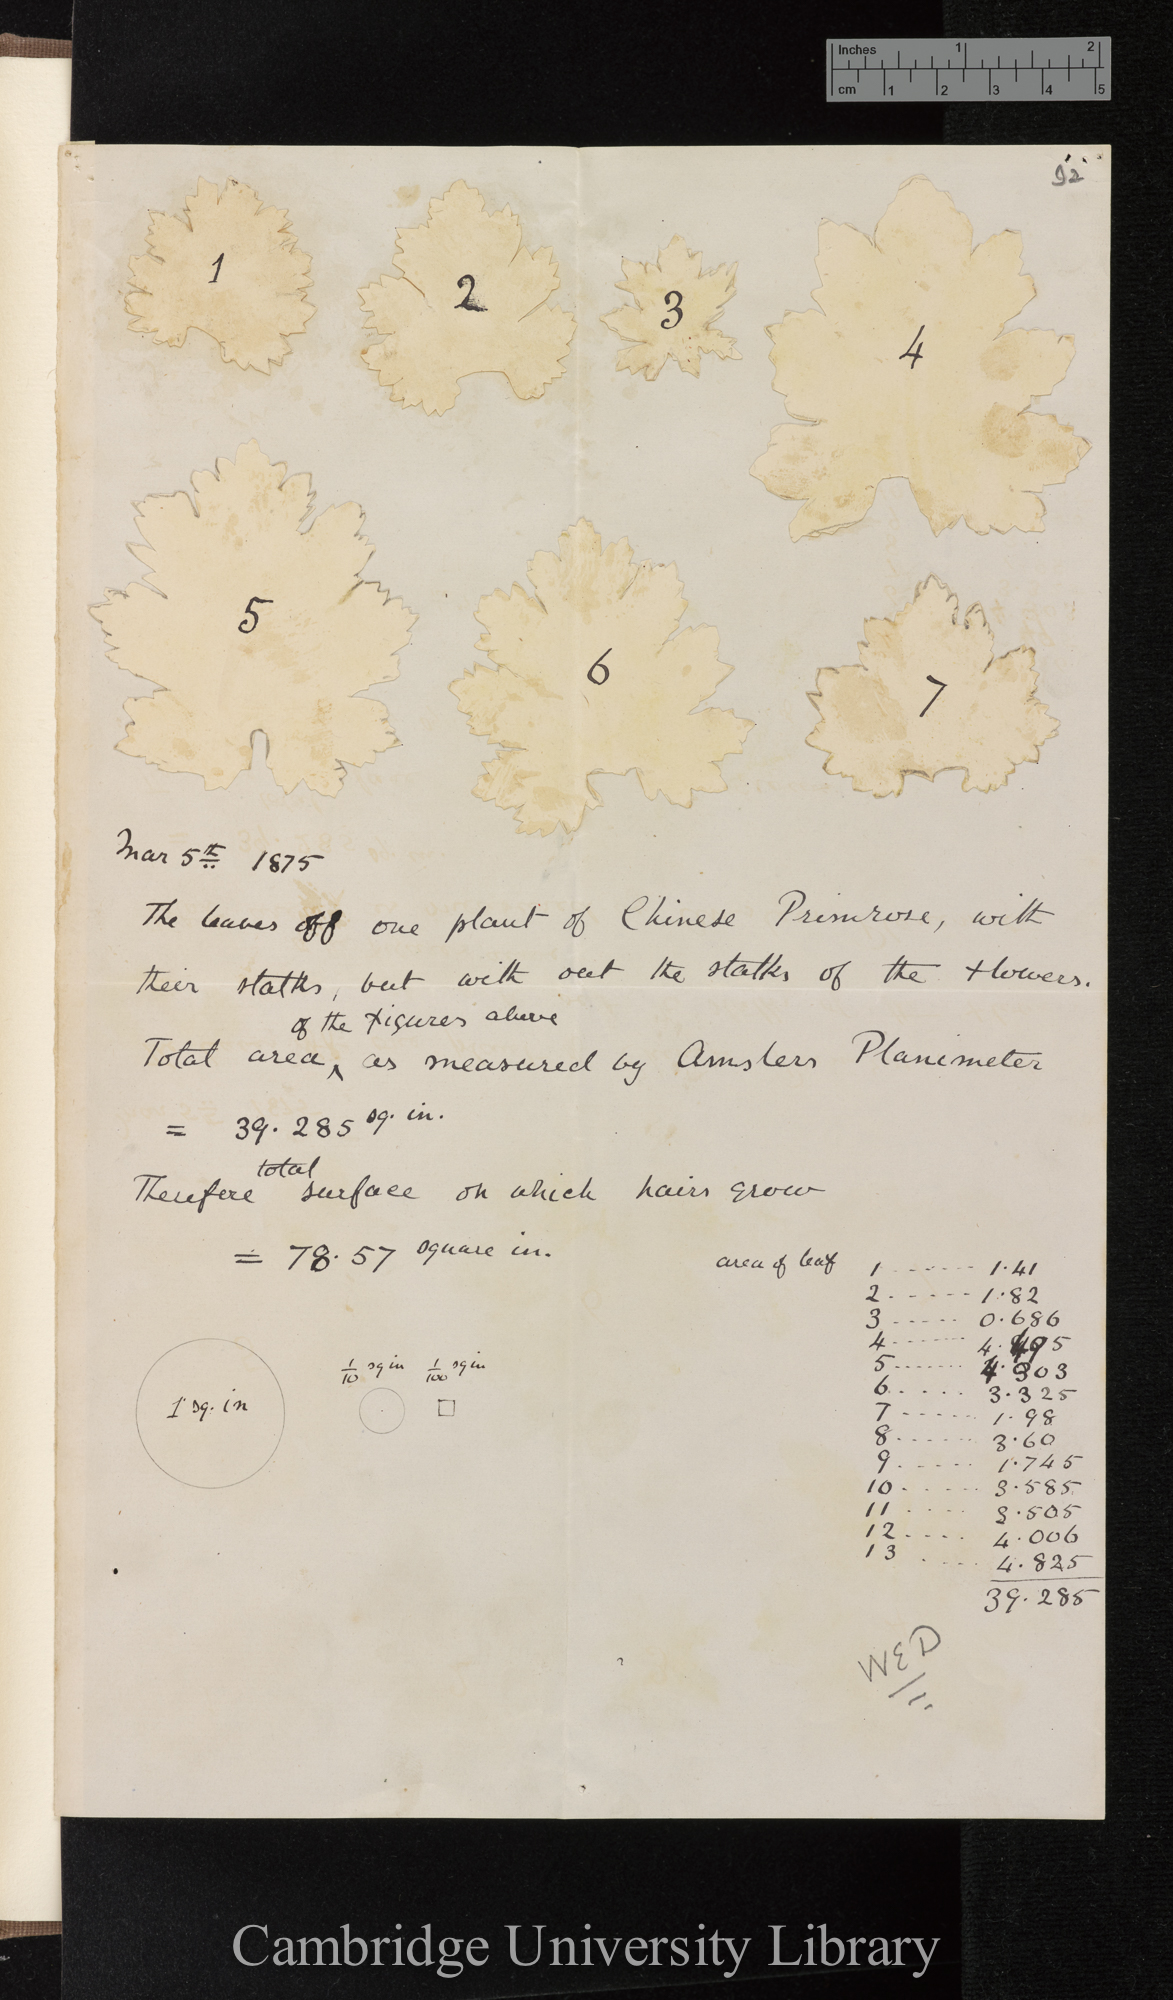 Inches 1 2
cm 1 2 3 4 5
92
1
2
3
4
5
6
7
Mar 5th 1875
The leaves off one plant of Chinese Primrose, with
their stalks, but with out the stalks of the flowers.
of the figures above
Total area, as measured by Amslers Planimeter
= 39.285 sq. in.
total
Therefore surface on which hairs grow
= 78.57 square in.
area of leaf 1 ------ 1.41
2 ------ 1.82
3 ----- 0.686
4 ------ 4.
5 ------ 4.303
6 ---- 3.325
7 ----- 1.98
8 ------ 3.60
9 ----- 1.745
10 ----- 3.585
11 ---- 3.505
12 ---- 4.006
13 ---- 4.825
39.285
1 sq. in
1/10 sq in 1/100 sq in
WED
Cambridge University Library